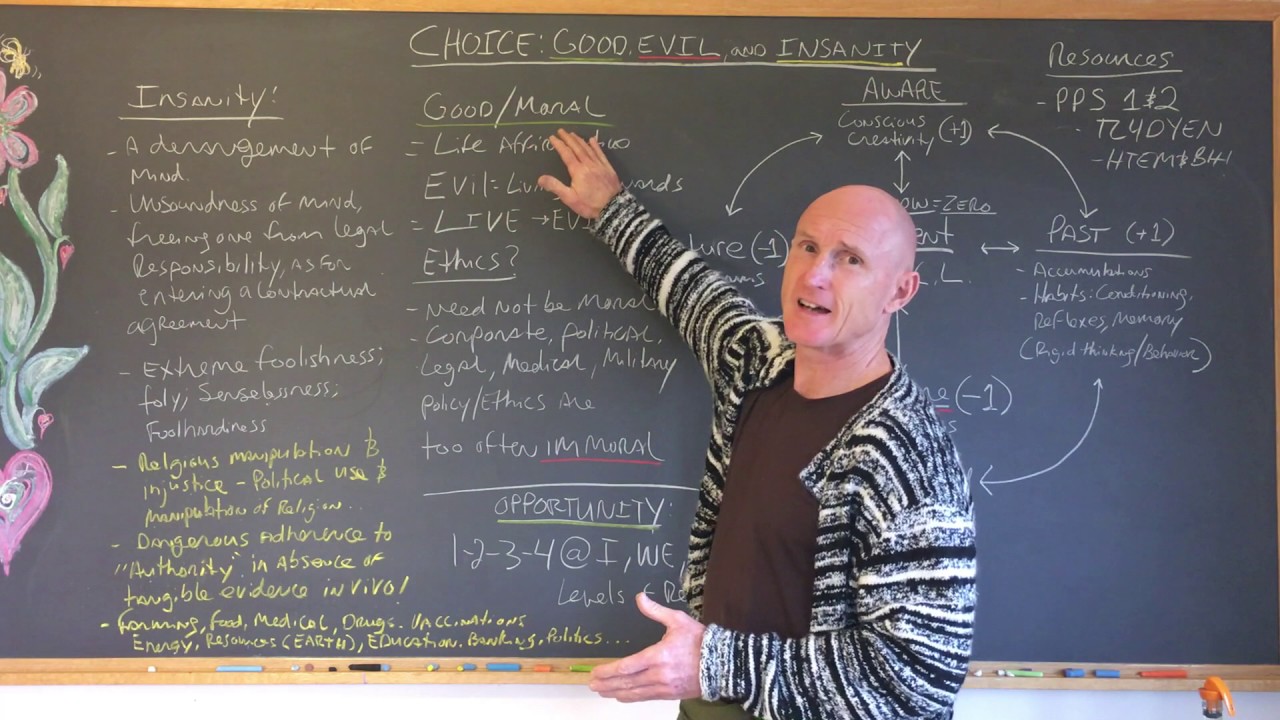 CHOICE: GOOD, EVIL, and INSANITY
INSANITY:
- A derangement of
Mind.
- Unsoundness of mind,
freeing one from legal
Responsibility, as for
entering a contractual
agreement
- Extreme foolishness;
folly; Senselessness;
Foolhardiness
- Religious manipulation &
injustice - Political use &
manipulation of Religion...
- Dangerous Adherence to
"Authority" in Absence of
tangible evidence in vivo!
- Farming, Food, Medical, Drugs, VACCINATIONS
Energy, Resources (EARTH), EDUCATION, Banking, Politics...
GOOD/MORAL
= Life
EVIL =
= LIVE → EVI
Ethics?
- Need not be Moral
- Corporate, political,
Legal, Medical, Military
policy/Ethics are
too often IMMORAL
OPPORTUNITY:
1-2-3-4 @ I, WE,
Levels
AWARE
Conscious
Creativity (+1)
= ZERO
(-1)
(-1)
PAST (+1)
- Accumulations
- Habits: Conditioning,
Reflexes, Memory
(Rigid thinking/Behavior)
Resources
- PPS 1&2
- TL4DYEN
- HTEM&BHI